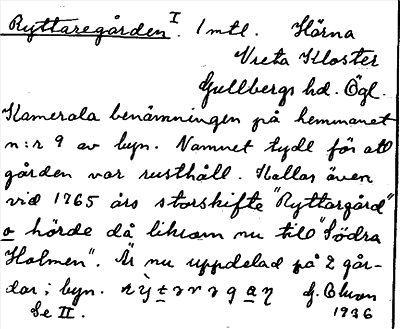 Ryttaregården I. 1 mtl. Hörna
Vreta Kloster
Gullbergs hd. Ögl.
Kamerala benämningen på hemmanet
n:r 9 av byn. Namnet tydl för att
gården var rusthåll. Kallas även
vid 1765 års storskifte "Ryttargård"
o hörde då liksom nu till "Södra
Holmen". Är nu uppdelad på 2 går-
dar i byn.
Se II. 1936